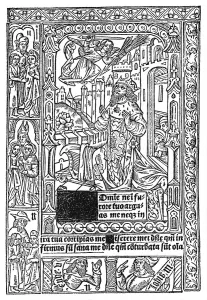 Domine ne i fu
rore tuo argu
as me neqz in
ira tua corripias me Miserere mei dñe qm̃ in
firmus suz sana me dñe qm̃ cõturbata sũt oĩa